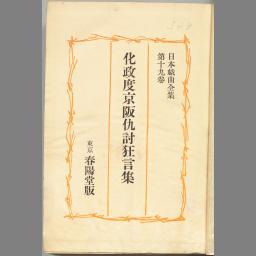 日本戯曲全集
第十九卷
化政度京阪仇討狂言集
東京 春陽堂版